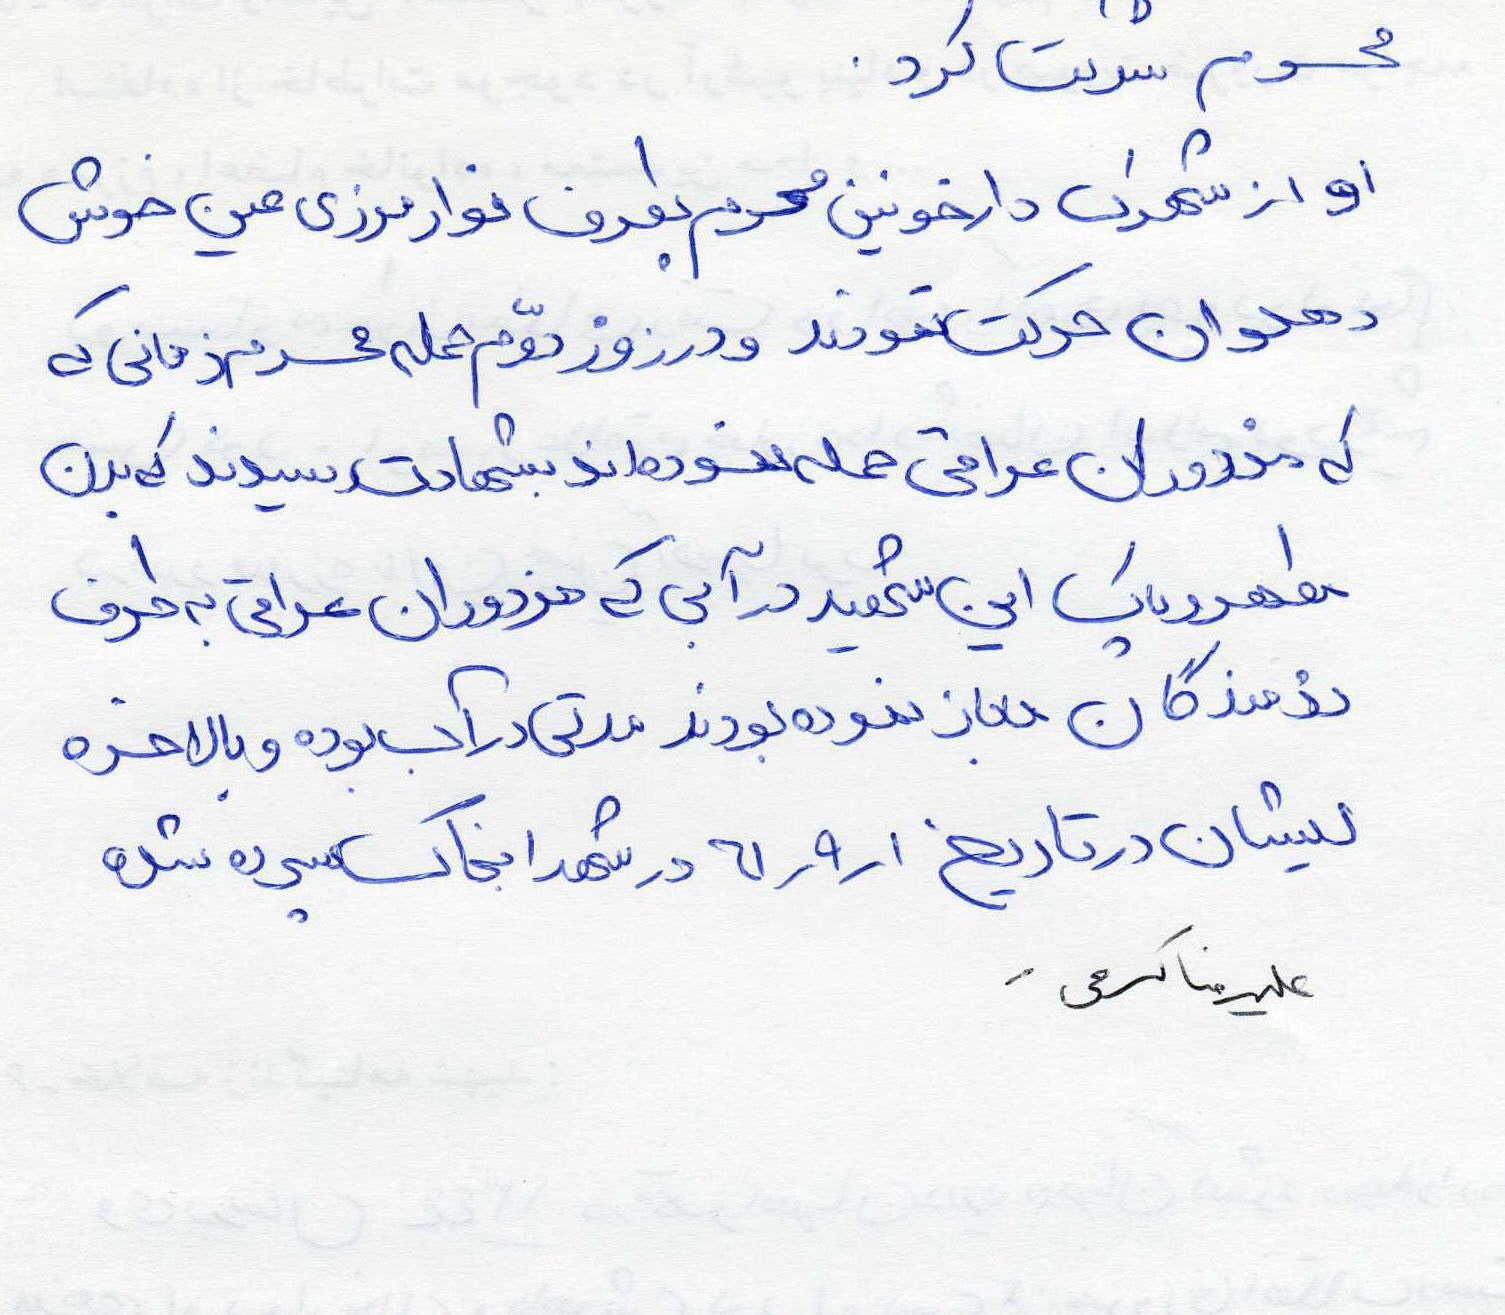 محرم شرکت کرد.
او از شهرک دارخوئین محرم بطرف نوار مرزی عین خوش
دهلران حرکت نمودند و در روز دوّم حمله محرم زمانی که
که مزدوران عراقی حمله نموده اند بشهادت رسیدند که بدن
مطهر و پاک این شهید در آبی که مزدوران عراقی به طرف
رزمندگان باز نموده بودند مدتی در آب بوده و بالاخره
ایشان در تاریخ ۶۱/۹/۱ در شهدا بخاک سپرده شده
علیرضا کرمی -